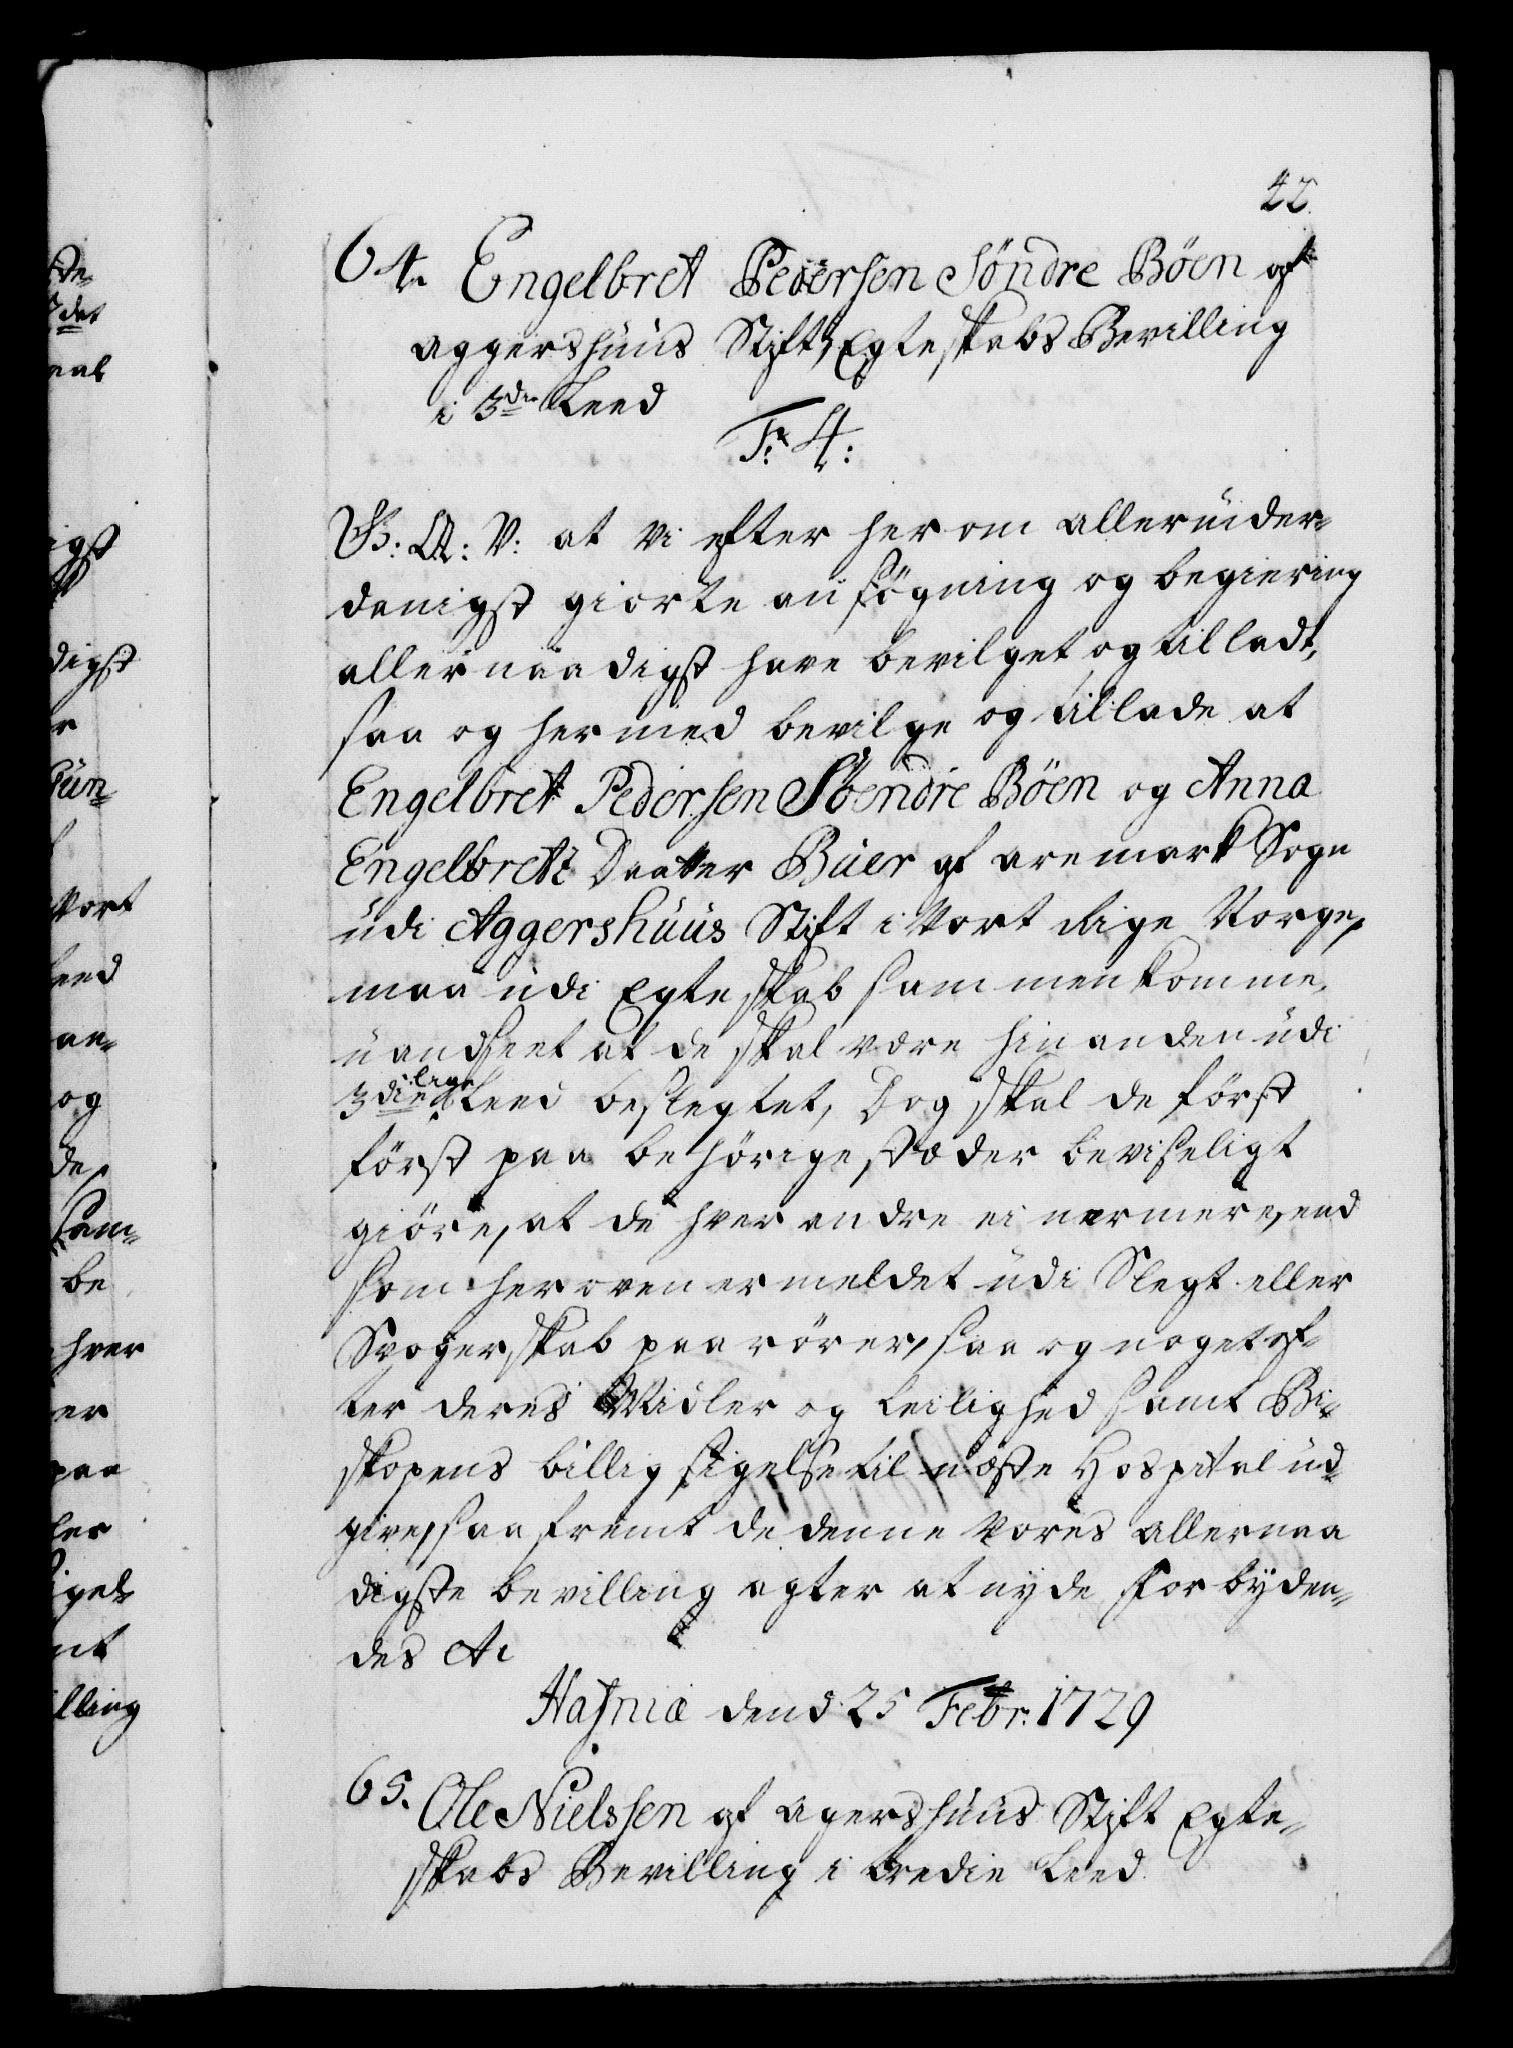 42
64. Engelbret Pedersen Söndre Böen af
Aggershuus Stift, Egteskabs Bevilling
i 3die Leed
F. 4:
G: A: V: at Vi efter her om allerunder-
danigst giorte ansögning og begiering
allernaadigst have bevilget og tilladt,
saa og hermed bevilge og tillade at
Engelbret Pedersen Söendre Böen og Anna
Engelbretz Daatter Buer af aremark Sogn
udi Aggershuus Stift i Vort Rige Norge,
maa udi Egteskab sammenkomme,
uanseet at de skal være hinanden udi
3die lige Leed beslegtet, Dog skal de först
först paa behörige stæder beviseligt
giöre, at de hverandre ei nermere, end
som her oven ermeldet udi Slegt eller
Svogerskab paarörer, saa og noget ef-
ter deres Midler og Leilighed samt Bi-
skopens billig sigelse til næste Hospital ud-
give, saa fremt de denne Vores Allernaa
digste bevilling agter at nyde Forbyden-
des Ac
Hafniæ dend 25 Febr: 1729
65. Ole Nielssen af Agershuus Stift Egte-
skabs Bevilling i tredie Leed
Vort
Leed
og
de,
Sam-
be
hver
er
paa